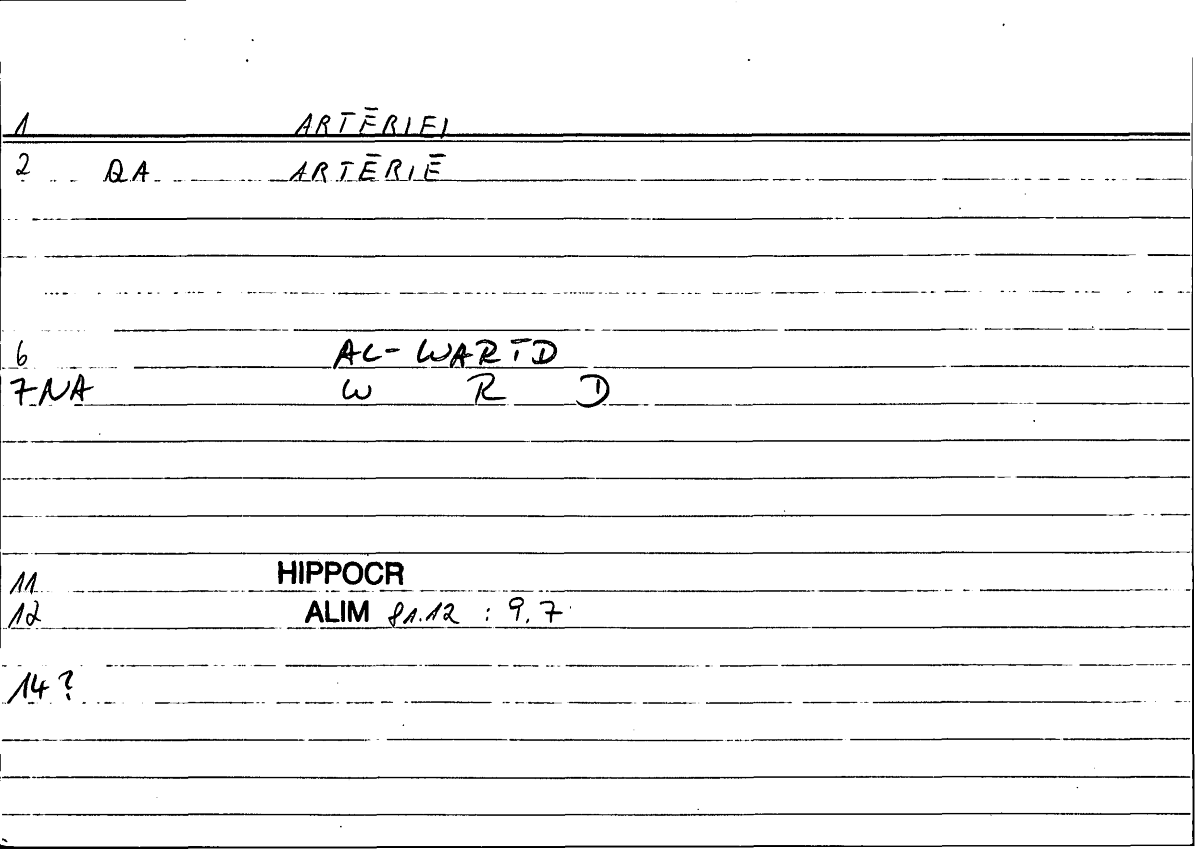 1 ARTĒRIEI
2 QA ARTĒRIĒ
6 AL-WARĪD
7 NA W R D
11 HIPPOCR
12 ALIM 81.12 : 9,7
14 ?